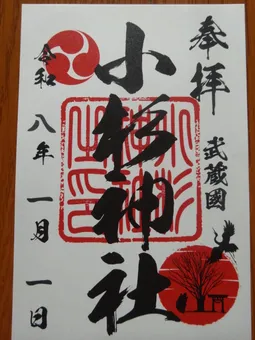 奉拝
武蔵國
小杉神社
令和
八年一月一日